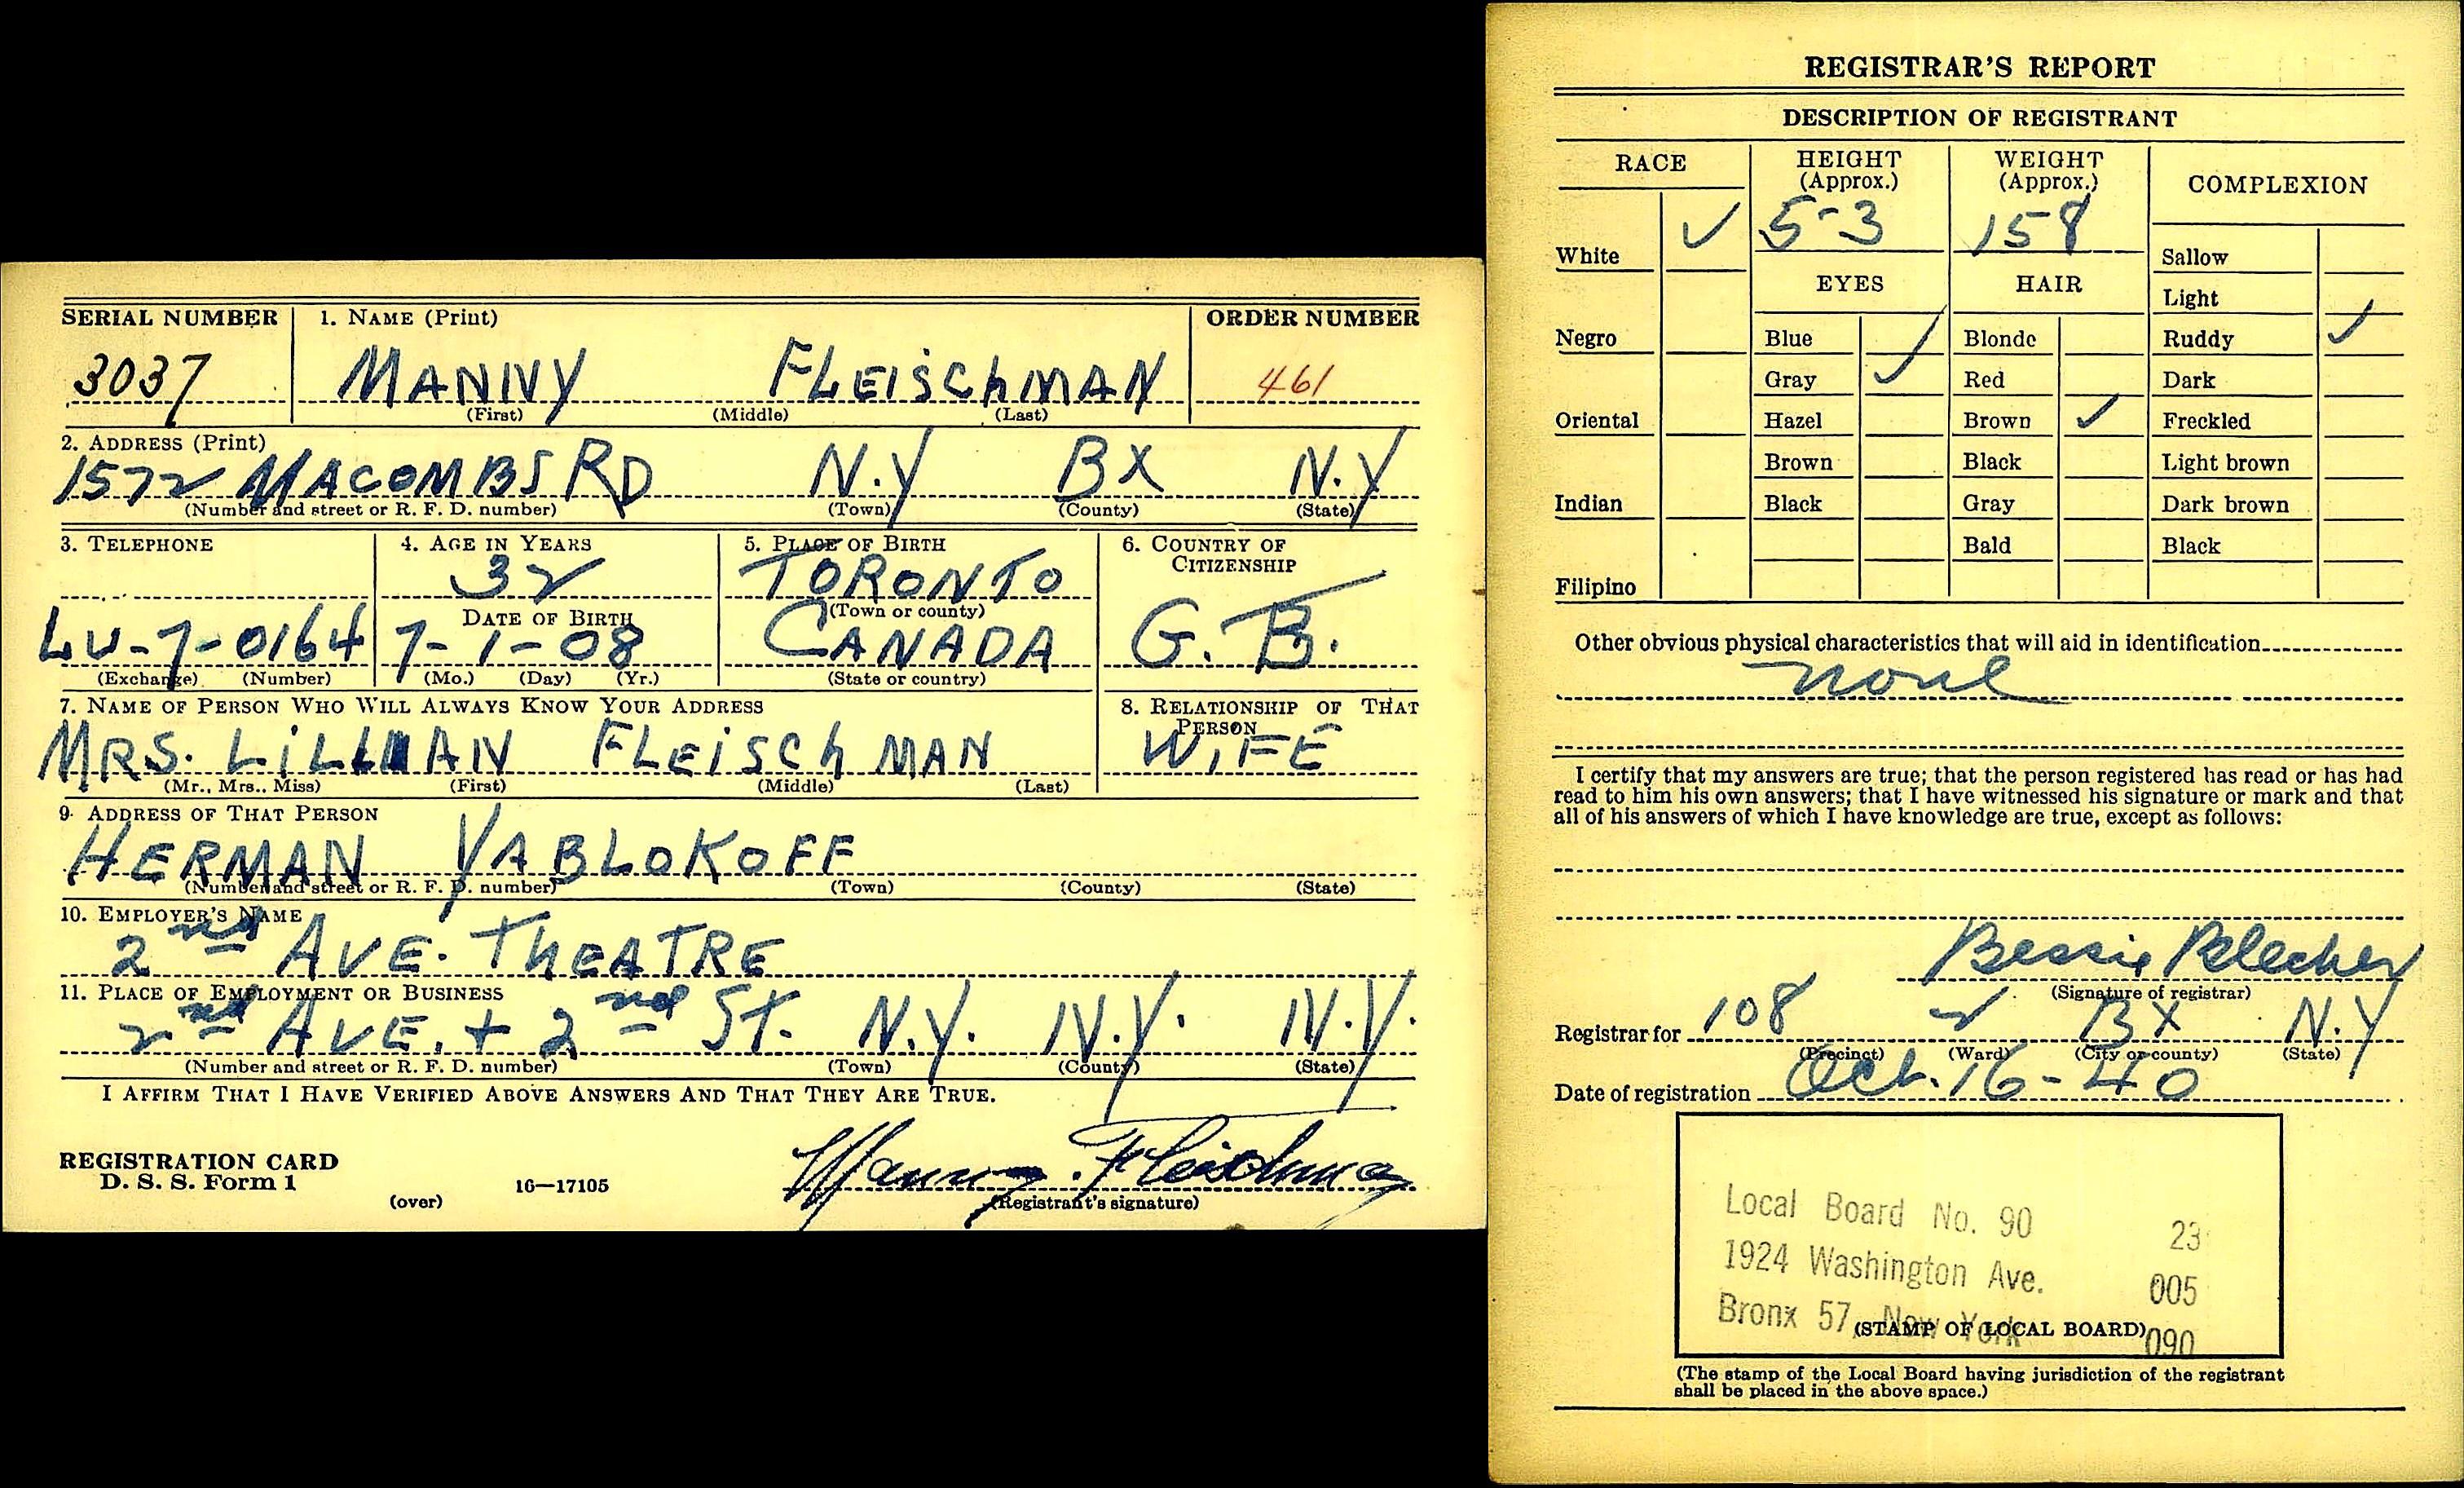 SERIAL NUMBER 1. NAME (Print) ORDER NUMBER
3037 MANNY FLEISCHMAN 461
(First) (Middle) (Last)
2. ADDRESS (Print)
1572 MACOMBS RD N.Y BX N.Y
(Number and street or R. F. D. number) (Town) (County) (State)
3. TELEPHONE 4. AGE IN YEARS 5. PLACE OF BIRTH 6. COUNTRY OF CITIZENSHIP
32 TORONTO
DATE OF BIRTH (Town or county)
LU-7-0164 7-1-08 CANADA G. B.
(Exchange) (Number) (Mo.) (Day) (Yr.) (State or country)
7. NAME OF PERSON WHO WILL ALWAYS KNOW YOUR ADDRESS 8. RELATIONSHIP OF THAT PERSON
MRS. LILLIAN FLEISCHMAN WIFE
(Mr., Mrs., Miss) (First) (Middle) (Last)
9. ADDRESS OF THAT PERSON
HERMAN YABLOKOFF
(Number and street or R. F. D. number) (Town) (County) (State)
10. EMPLOYER'S NAME
2nd AVE. THEATRE
11. PLACE OF EMPLOYMENT OR BUSINESS
2nd AVE. + 2nd ST. N.Y. N.Y. N.Y.
(Number and street or R. F. D. number) (Town) (County) (State)
I AFFIRM THAT I HAVE VERIFIED ABOVE ANSWERS AND THAT THEY ARE TRUE.
Manny Fleischman
REGISTRATION CARD
D. S. S. Form 1 (over) 16—17105 (Registrant's signature)
REGISTRAR'S REPORT
DESCRIPTION OF REGISTRANT
RACE HEIGHT (Approx.) WEIGHT (Approx.) COMPLEXION
White ✓ 5-3 158 Sallow
EYES HAIR Light
Negro Blue ✓ Blonde Ruddy ✓
Gray Red Dark
Oriental Hazel Brown ✓ Freckled
Brown Black Light brown
Indian Black Gray Dark brown
Bald Black
Filipino
Other obvious physical characteristics that will aid in identification
none
I certify that my answers are true; that the person registered has read or has had
read to him his own answers; that I have witnessed his signature or mark and that
all of his answers of which I have knowledge are true, except as follows:
Bessie Blecher
(Signature of registrar)
Registrar for 108 2 BX N.Y
(Precinct) (Ward) (City or county) (State)
Date of registration Oct. 16-40
Local Board No. 90 23
1924 Washington Ave. 005
Bronx 57, New York 090
(STAMP OF LOCAL BOARD)
(The stamp of the Local Board having jurisdiction of the registrant
shall be placed in the above space.)